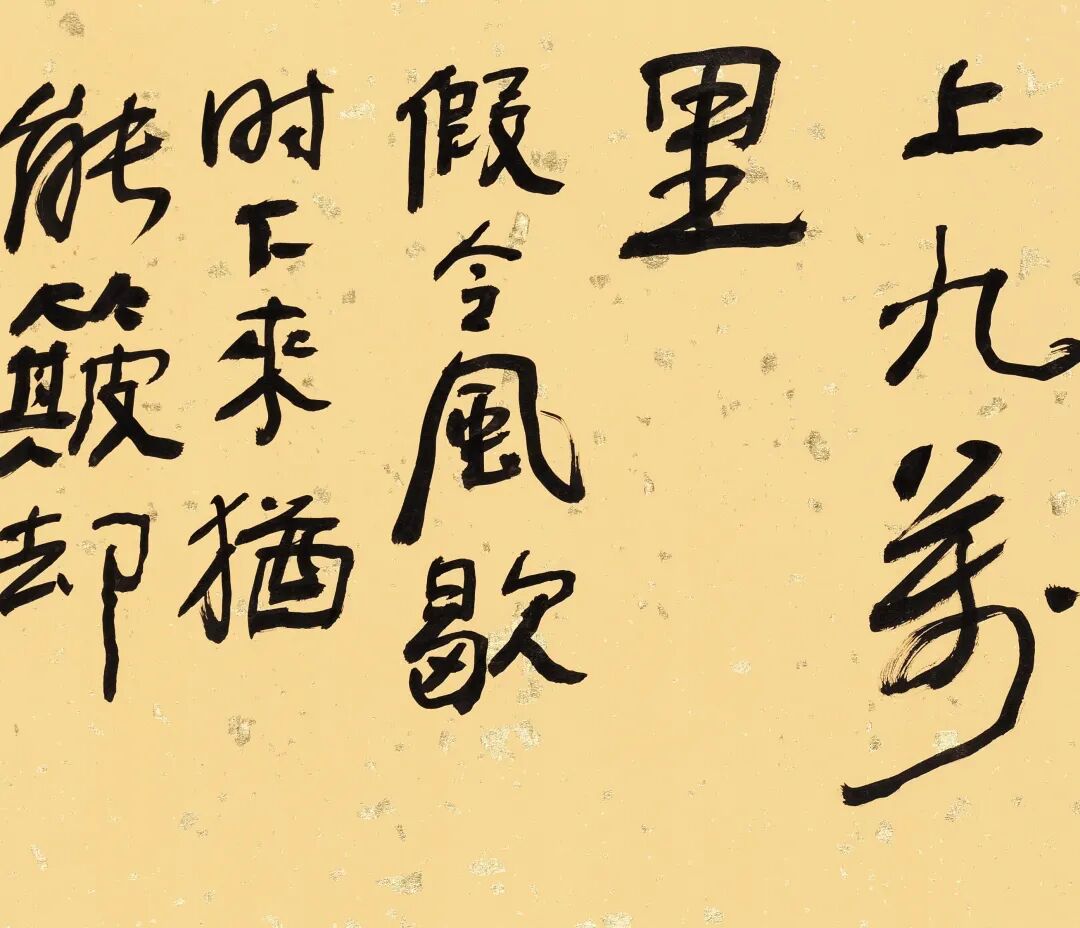 上九萬
里
假令風歇
时下來猶
能簸却